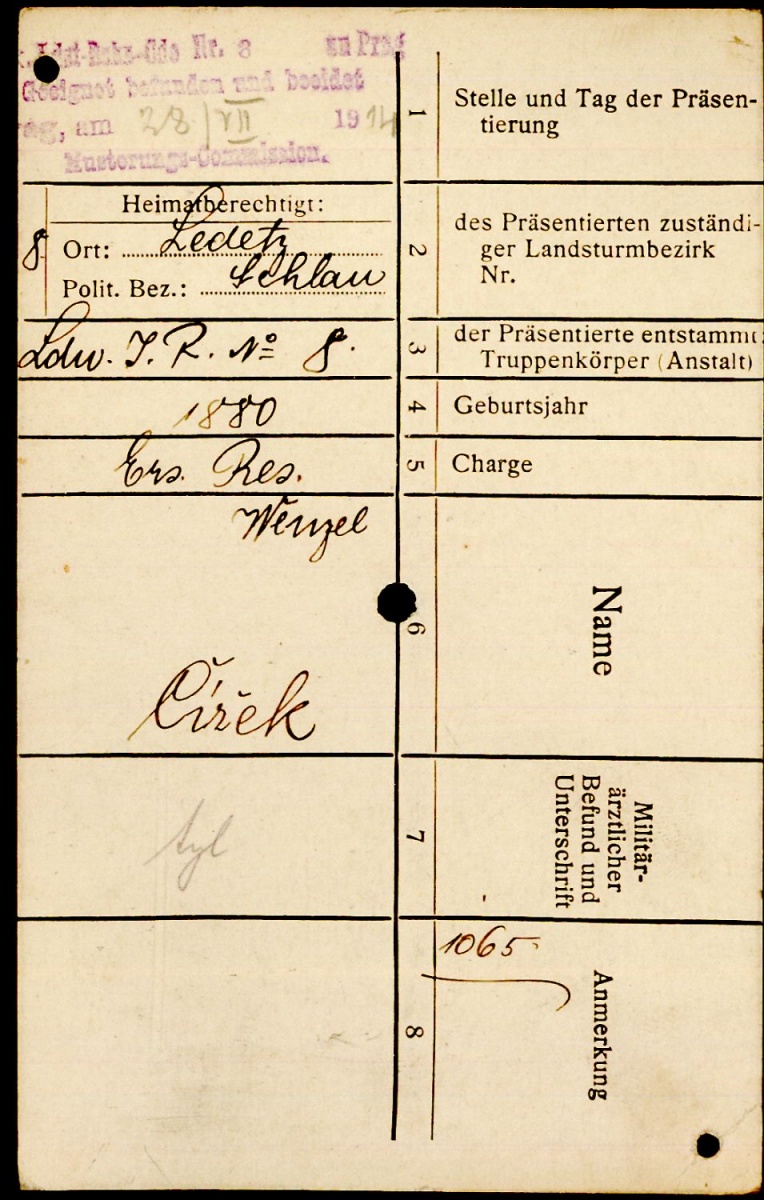 Ldst-Bzks-Cdo Nr. 8 zu Prag
Geeignet befunden und beeidet
am 28/VII 1914
Musterungs-Commission.
1
Stelle und Tag der Präsen-
tierung
Heimatberechtigt:
8
Ort: Ledetz
Polit. Bez.: Schlau
2
des Präsentierten zuständi-
ger Landsturmbezirk
Nr.
Ldw. I. R. No 8.
3
der Präsentierte entstammt
Truppenkörper (Anstalt)
1880
4
Geburtsjahr
Ers. Res.
5
Charge
Wenzel
Čížek
6
Name
7
Militär-
ärztlicher
Befund und
Unterschrift
1065
8
Anmerkung